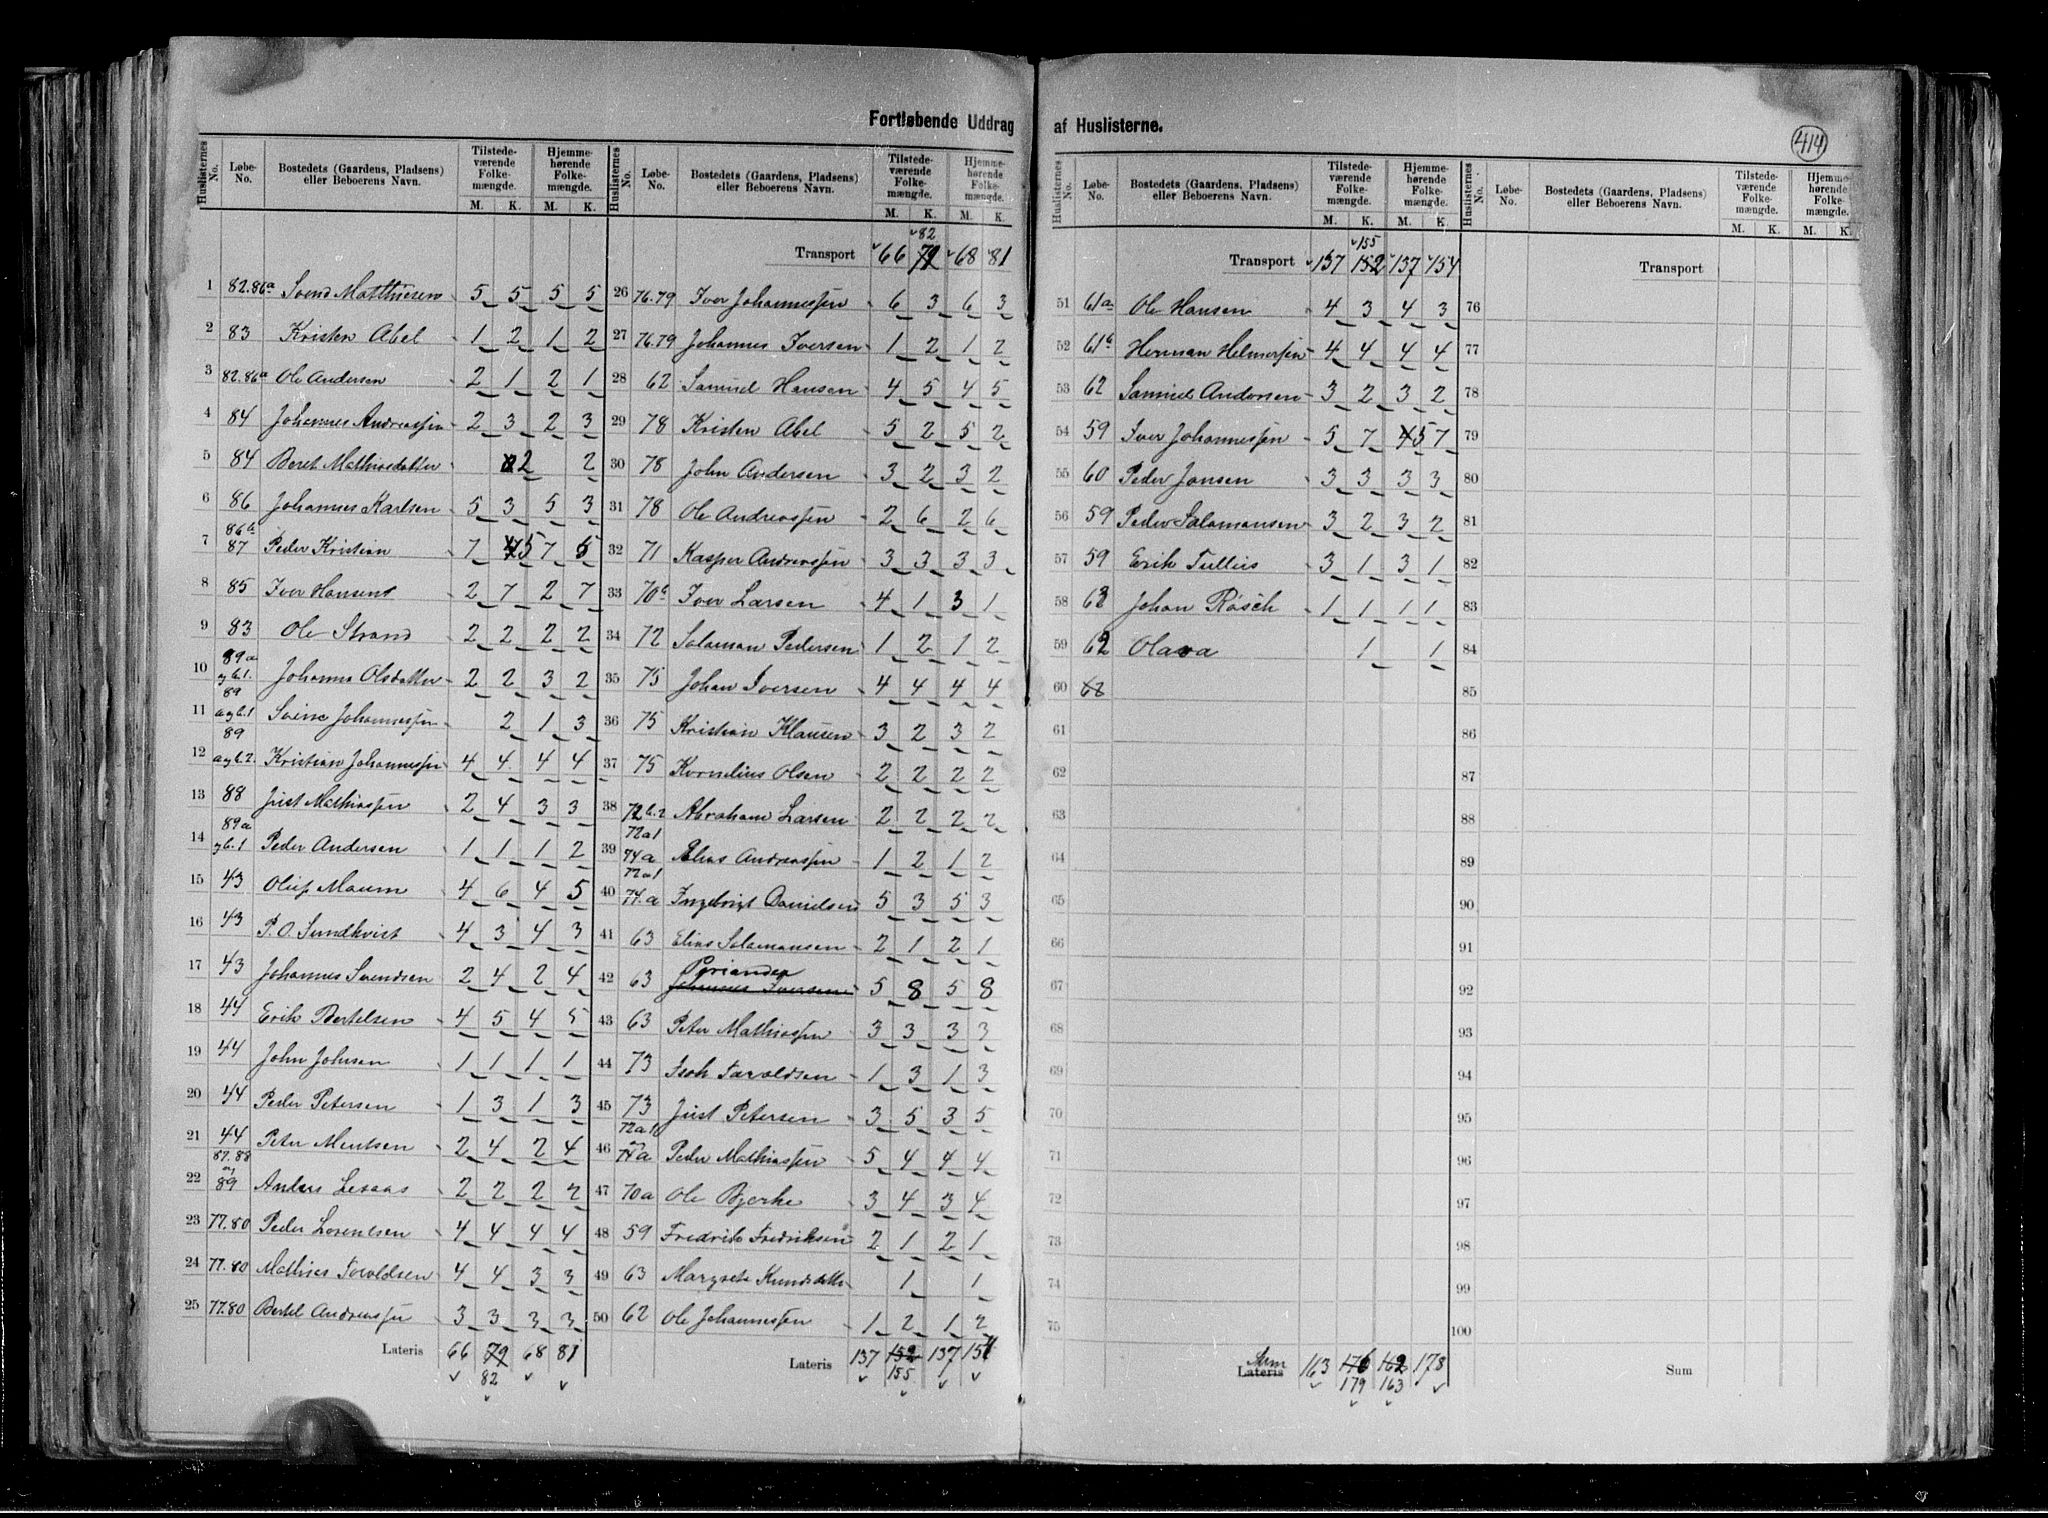 Fortløbende Uddrag af Huslisterne.
414
Huslisternes No. Løbe-No. Bostedets (Gaardens, Pladsens) eller Beboerens Navn. Tilstedeværende Folkemængde. M. K. Hjemmehørende Folkemængde. M. K.
1 82.86a Svend Matthiesens 5 5 5 5
2 83 Kristen Abel 1 2 1 2
3 82.86a Ole Andersen 2 1 2 1
4 84 Johannes Andreassen 2 3 2 3
5 84 Beret Mathiasdatter 2 2
6 86 Johannes Karlsen 5 3 5 3
7 86b 87 Peder Kristian 7 5 7 5
8 85 Iver Hansens 2 7 2 7
9 83 Ole Strand 2 2 2 2
10 89a og b.1. Johanna Olsdatter 2 2 3 2
11 89 a og b.1 Johannessen 2 1 3
12 89 a og b.2. Kristian Johannessen 4 4 4 4
13 88 Just Mathiassen 2 4 3 3
14 89a og b.1 Peder Andersen 1 1 1 2
15 43 Oluf Maum 4 6 4 5
16 43 P. O. Sundkvist 4 3 4 3
17 43 Johannes Svendsen 2 4 2 4
18 44 Erik Bertelsen 4 5 4 5
19 44 John Johnsen 1 1 1 1
20 44 Peder Petersen 1 3 1 3
21 44 Peter Mentsen 2 4 2 4
22 87.88 og 89 Anders 2 2 2 2
23 77.80 Peder Lorentsen 4 4 4 4
24 77.80 Mathias Toroldsen 4 4 3 3
25 77.80 Bertel Andreassen 3 3 3 3
Lateris 66 79 68 81
82
Huslisternes No. Løbe-No. Bostedets (Gaardens, Pladsens) eller Beboerens Navn. Tilstedeværende Folkemængde. M. K. Hjemmehørende Folkemængde. M. K.
82
Transport 66 79 68 81
26 76.79 Iver Johannessen 6 3 6 3
27 76.79 Johannes Iversen 1 2 1 2
28 62 Samuel Hansen 4 5 4 5
29 78 Kristen Abel 5 2 5 2
30 78 John Andersen 3 2 3 2
31 78 Ole Andreassen 2 6 2 6
32 71 Kasper Andreassen 3 3 3 3
33 70b Iver Larsen 4 1 3 1
34 72 Salaman Pedersen 1 2 1 2
35 75 Johan Iversen 4 4 4 4
36 75 Kristian Klausen 3 2 3 2
37 75 Kornelius Olsen 2 2 2 2
38 72b.2 Abraham Larsen 2 2 2 2
39 72a1 74a Elias Andreassen 1 2 1 2
40 72a1 74.a Ingebrigt Danielsen 5 3 5 3
41 63 Elias Salamansen 2 1 2 1
42 63 Periander Johannes Iversen 5 8 5 8
43 63 Peter Mathiassen 3 3 3 3
44 73 Isak Taraldsen 1 3 1 3
45 73 Just Petersen 3 5 3 5
46 72a1 og 74a Peder Mathiassen 5 4 4 4
47 70a Ole Bjerke 3 4 3 4
48 59 Fredrik Fredriksen 2 1 2 1
49 63 Margrete 1 1
50 62 Ole Johannessen 1 2 1 2
Lateris 137 152 137 154
155
Huslisternes No. Løbe-No. Bostedets (Gaardens, Pladsens) eller Beboerens Navn. Tilstedeværende Folkemængde. M. K. Hjemmehørende Folkemængde. M. K.
155
Transport 137 152 137 154
51 61a Ole Hansen 4 3 4 3
52 61b Herman Helmersen 4 4 4 4
53 62 Samuel Andersen 3 2 3 2
54 59 Iver Johannessen 5 7 4 5 7
55 60 Peder Jonsen 3 3 3 3
56 59 Peder Salamansen 3 2 3 2
57 59 Erik Tullius 3 1 3 1
58 62 Johan Rösch 1 1 1 1
59 62 Olava 1 1
60 62
61
62
63
64
65
66
67
68
69
70
71
72
73
74
75
Sum
Lateris 163 176 162 178
179 163
Huslisternes No. Løbe-No. Bostedets (Gaardens, Pladsens) eller Beboerens Navn. Tilstedeværende Folkemængde. M. K. Hjemmehørende Folkemængde. M. K.
Transport
76
77
78
79
80
81
82
83
84
85
86
87
88
89
90
91
92
93
94
95
96
97
98
99
100
Sum